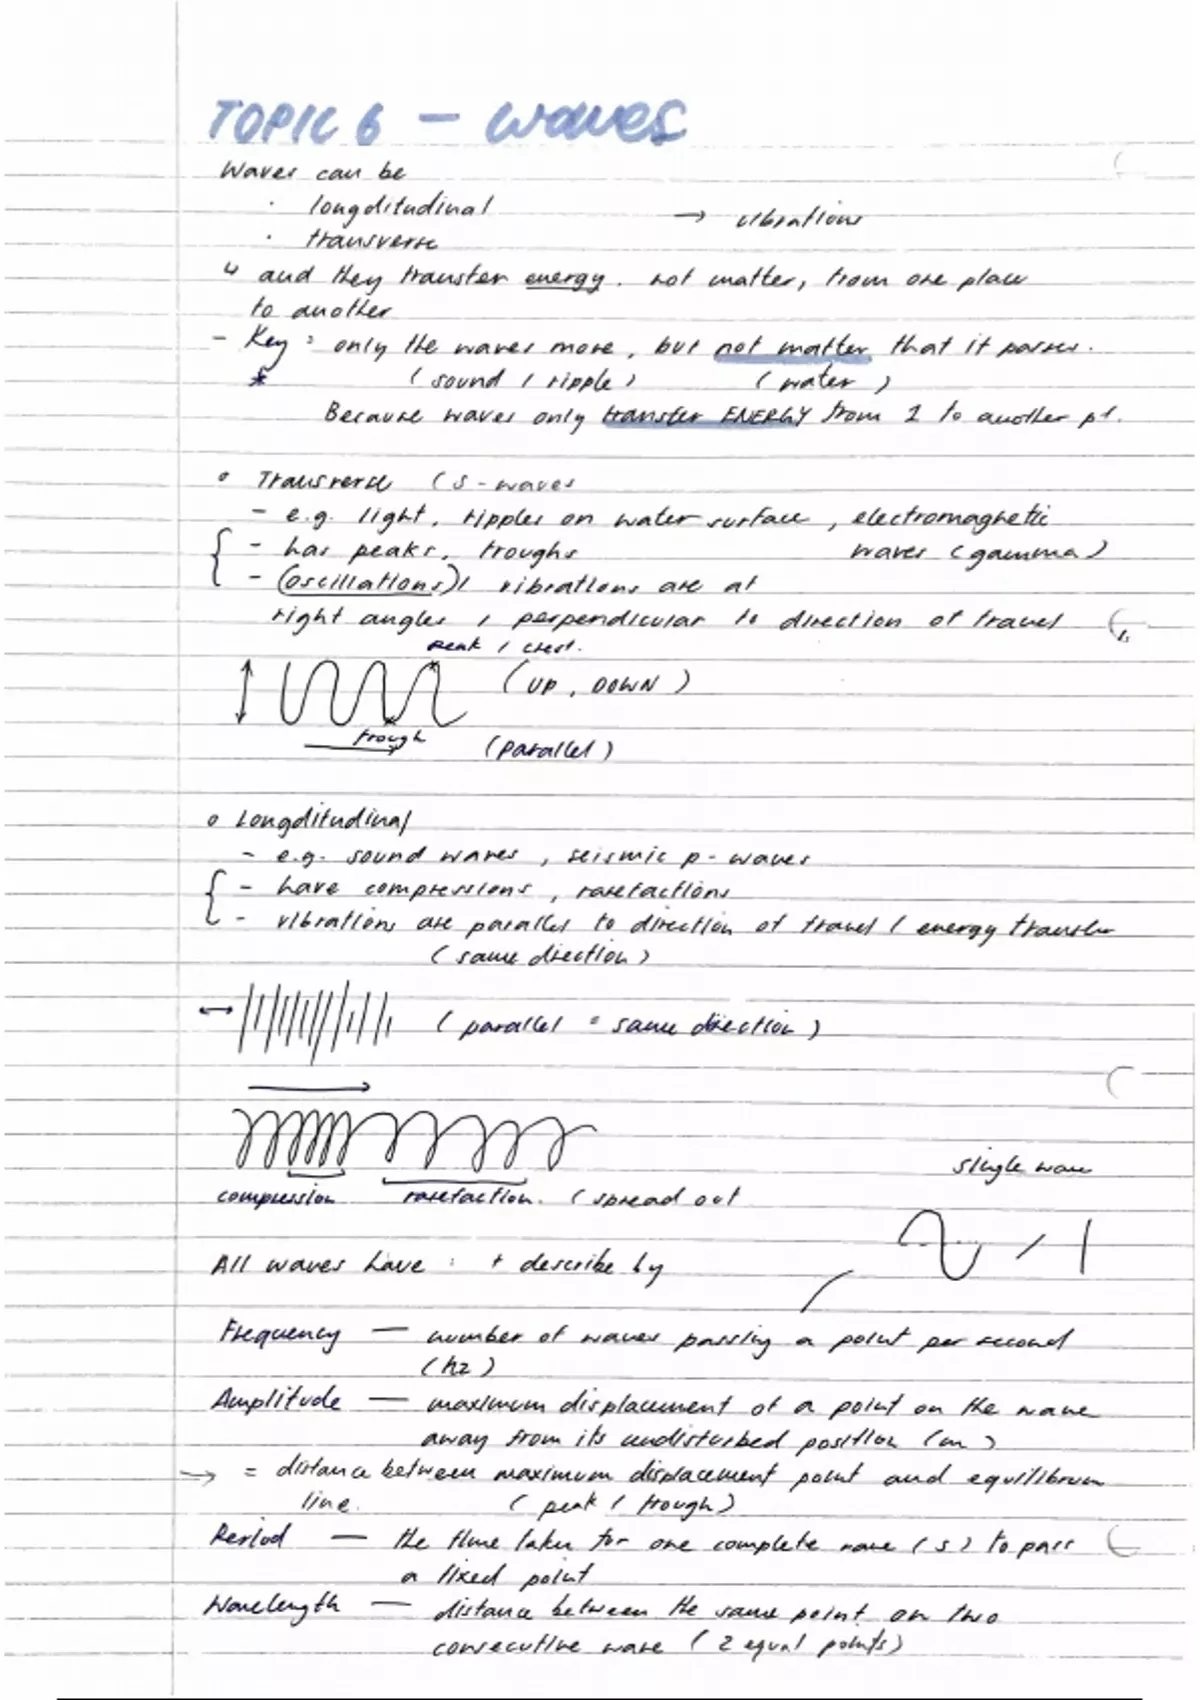 TOPIC 6 - waves
Waves can be
· longditudinal → vibrations
· transverse
↳ and they transfer energy, not matter, from one place
to another
- Key: only the waves move, but not matter that it passes.
* (sound / ripple) (water)
Because waves only transfer ENERGY from 1 to another pt.
o Transverse (s-waves
- e.g. light, ripples on water surface, electromagnetic
waves (gamma)
- has peaks, troughs
- (oscillations)/ vibrations are at
right angles / perpendicular to direction of travel
peak / crest.
(UP, DOWN)
trough
(parallel)
o Longditudinal
- e.g. sound waves, seismic p-waves
- have compressions, rarefactions
- vibrations are parallel to direction of travel / energy transfer
(same direction)
(parallel = same direction)
single wave
compression rarefaction. (spread out
All waves have: + describe by
Frequency — number of waves passing a point per second
(hz)
Amplitude — maximum displacement of a point on the wave
away from its undisturbed position (m)
→ = distance between maximum displacement point and equilibrum
line. (peak / trough)
Period — the time taken for one complete wave (s) to pass
a fixed point
Wavelength — distance between the same point on two
consecutive wave (2 equal points)